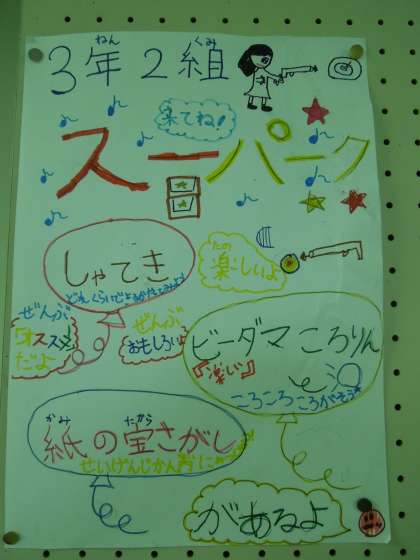 3年2組
ねん
くみ
来てね！
スーパーク
しゃてき
たの
楽しいよ
ぜんぶ
オススメ
だよ
ぜんぶ
おもしろい
ビーダマころりん
『楽しい』
ころころころがそう
かみ
たから
紙の宝さがし
せいげんじかん内に
があるよ